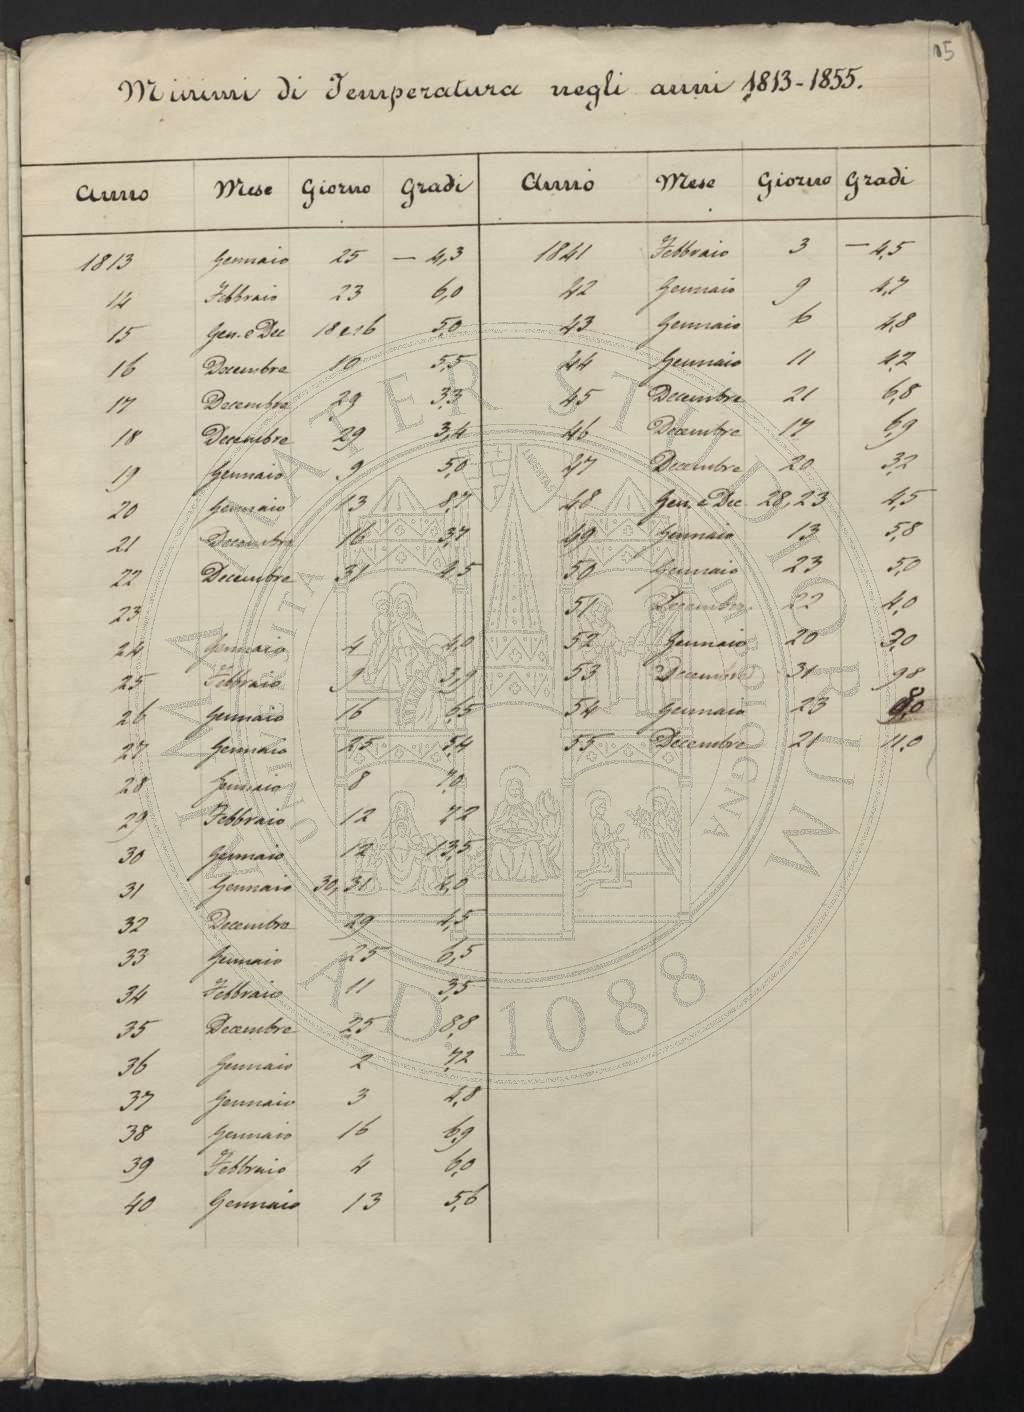 15
Minimi di Temperatura negli anni 1813-1855.
Anno Mese Giorno Gradi Anno Mese Giorno Gradi
1813 Gennaio 25 — 4,3 1841 Febbraio 3 — 4,5
14 Febbraio 23 6,0 42 Gennaio 9 4,7
15 Gen. e Dec 18 e 16 5,0 43 Gennaio 6 4,8
16 Decembre 10 5,5 44 Gennaio 11 4,2
17 Decembre 29 3,3 45 Decembre 21 6,8
18 Decembre 29 3,4 46 Decembre 17 6,9
19 Gennaio 9 5,0 47 Decembre 20 3,2
20 Gennaio 13 8,7 48 Gen. e Dec 28, 23 4,5
21 Decembre 16 3,7 49 Gennaio 13 5,8
22 Decembre 31 4,5 50 Gennaio 23 5,0
23 51 Decembre 22 4,0
24 Gennaio 4 4,0 52 Gennaio 20 3,0
25 Febbraio 9 3,9 53 Decembre 31 9,8
26 Gennaio 16 6,5 54 Gennaio 23 8,0
27 Gennaio 25 5,4 55 Decembre 21 11,0
28 Gennaio 8 7,0
29 Febbraio 12 7,2
30 Gennaio 12 13,5
31 Gennaio 30, 31 4,0
32 Decembre 29 4,5
33 Gennaio 25 6,5
34 Febbraio 11 3,5
35 Decembre 25 8,8
36 Gennaio 2 7,2
37 Gennaio 3 4,8
38 Gennaio 16 6,9
39 Febbraio 4 6,0
40 Gennaio 13 5,6
ALMA MATER STUDIORUM
A.D. 1088